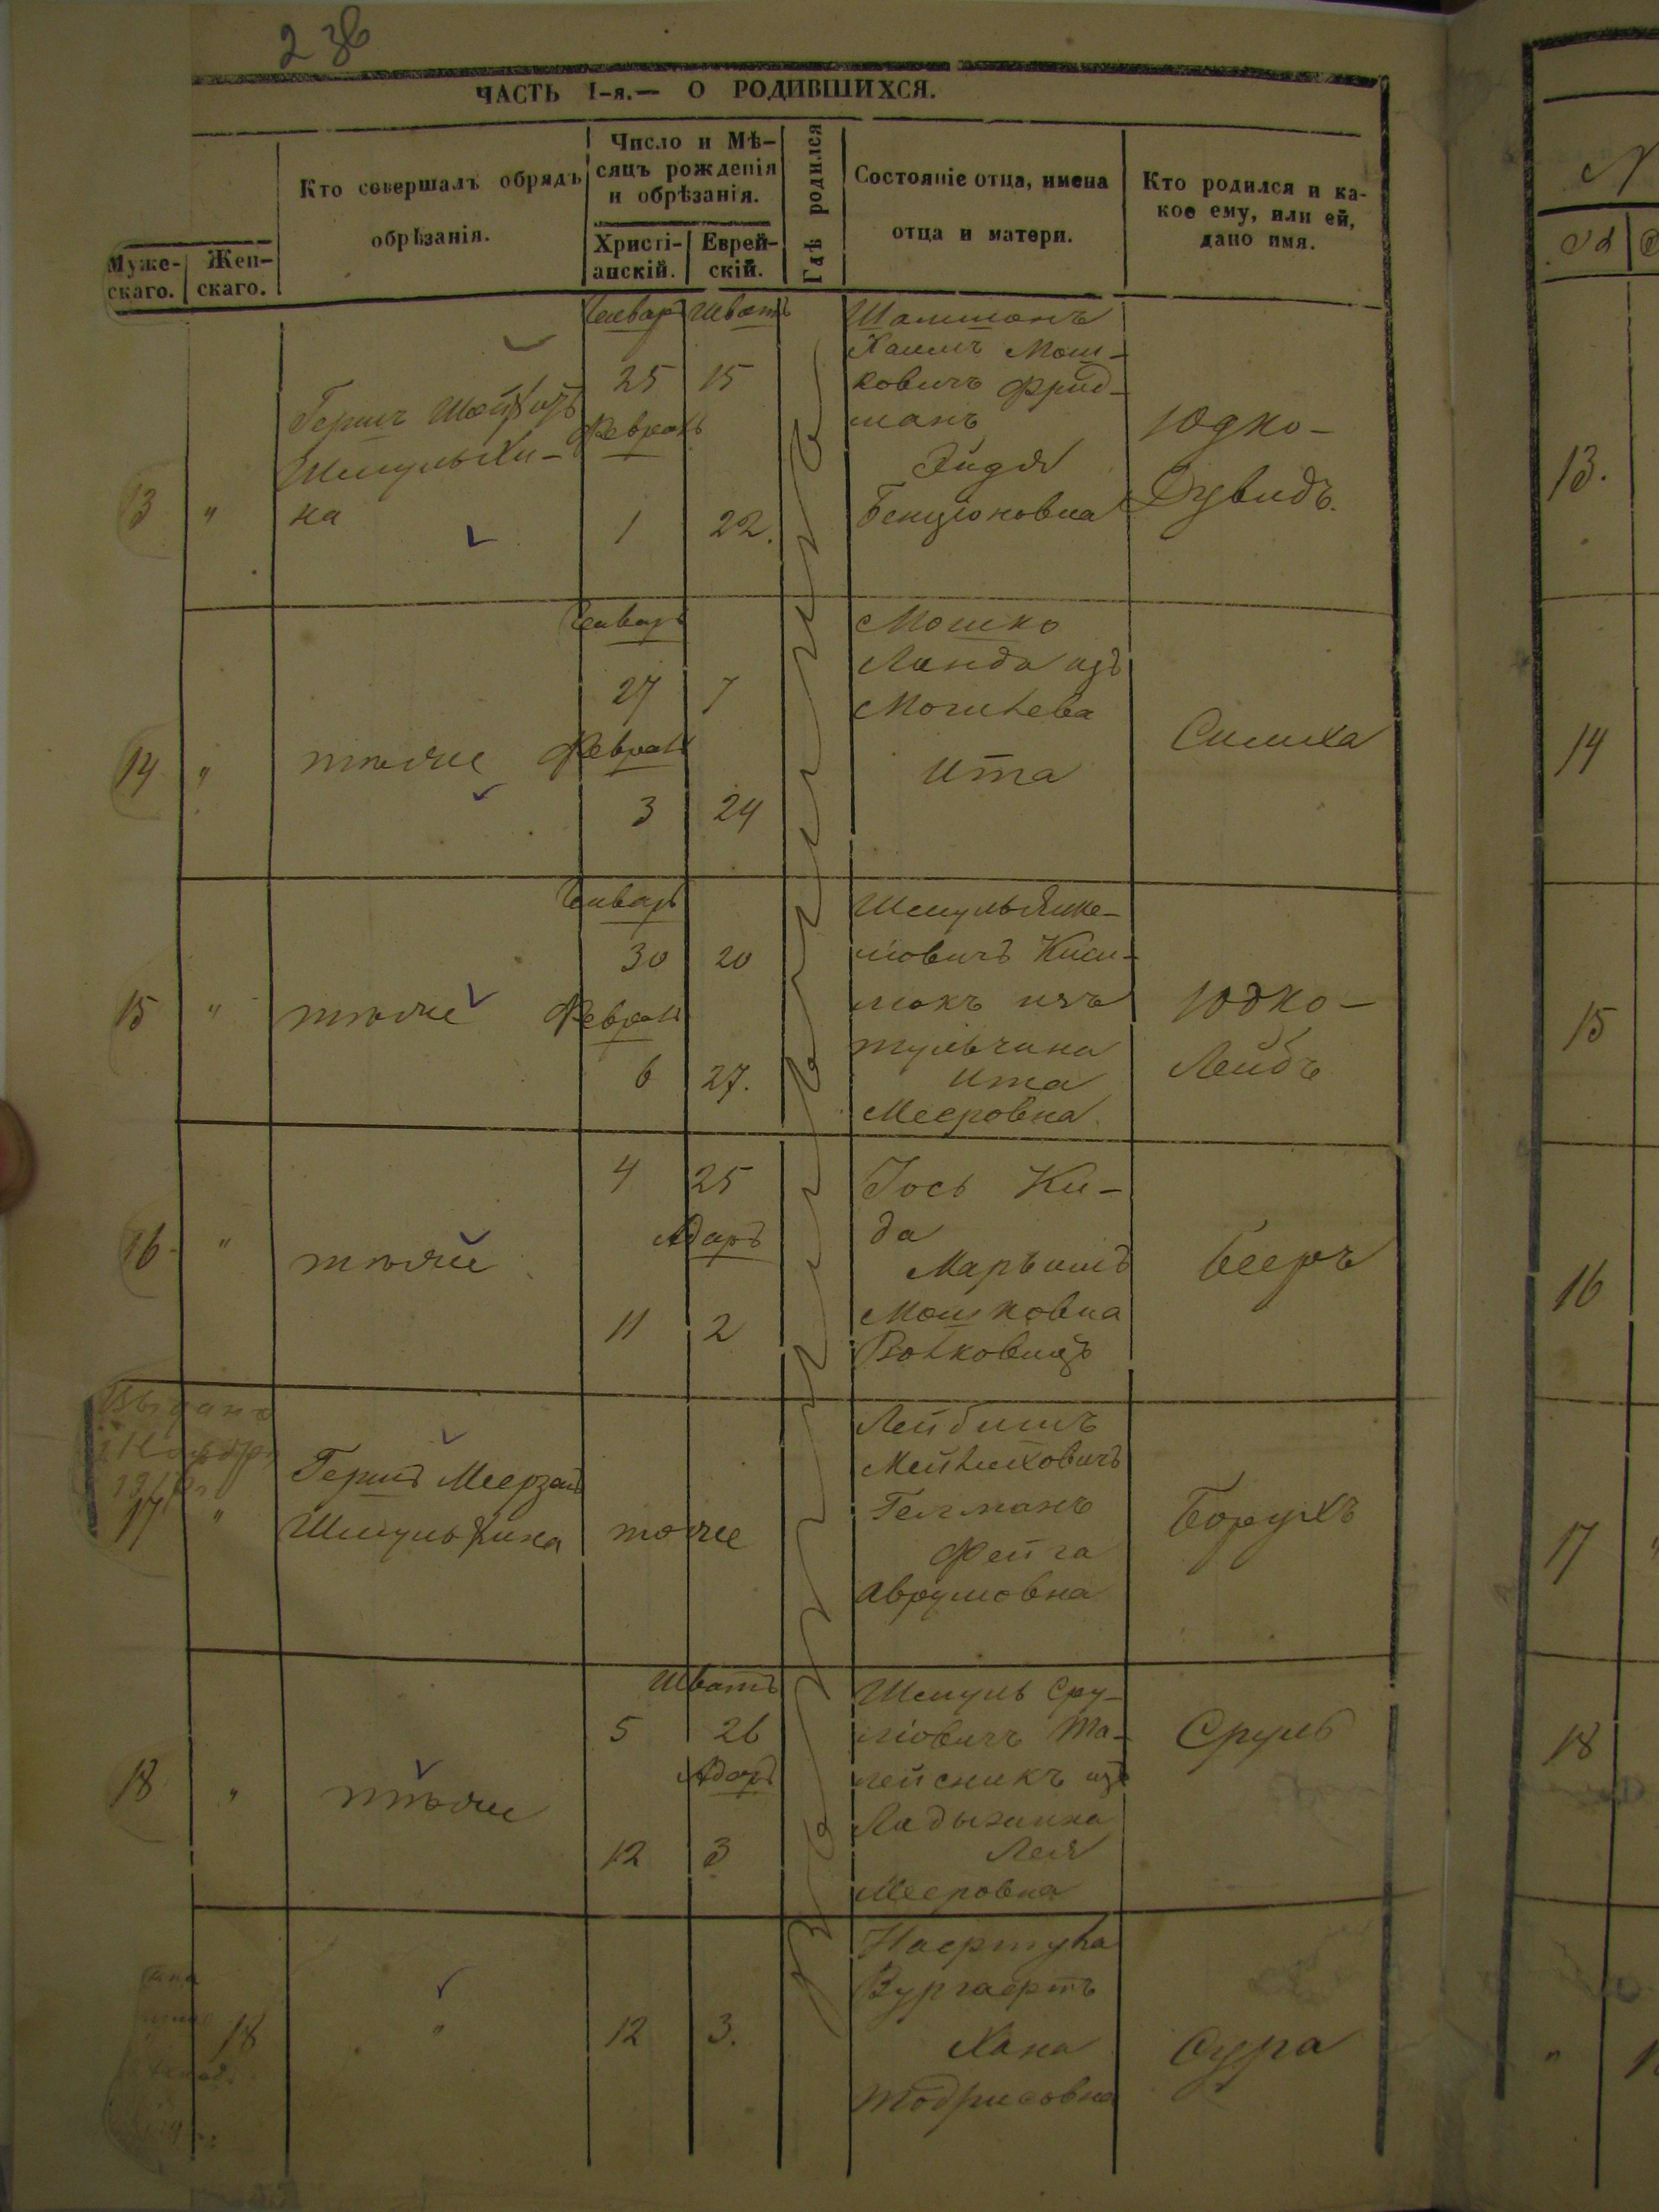 236
ЧАСТЬ I-я.— О РОДИВШИХСЯ.
Муже-скаго.
Жен-скаго.
Кто совершалъ обрядъ
обрѣзанія.
Число и Мѣ-
сяцъ рожденія
и обрѣзанія.
Христі-
анскій.
Еврей-
скій.
Гдѣ родился
Состояніе отца, имена
отца и матери.
Кто родился и ка-
кое ему, или ей,
дано имя.
13
"
Гершъ
Шмулькли-
на
Январь Шватъ
25 15
Февраль
1 22.
Шамшонъ
Хаимъ Мош-
ковичъ Фрид-
манъ
Эйдя
Бенціоновна
Юдко-
Дувидъ.
14
"
тоже
Январь
27 7
Февраль
3 24
Мошко
Ланда изъ
Могилева
Ита
Симха
15
"
тоже
Январь
30 20
Февраль
6 27.
Шмуль Янке-
лiовичъ
изъ
Тульчина
Ита
Мееровна
Юдко-
Лейбъ
16
"
тоже
4 25
Адаръ
11 2
Іось Ки-
да
Марьямъ
Мошковна
Волковицъ
Бееръ
17
"
Гершъ Меерзонъ
тоже
Лейбишъ
Мейлиховичъ
Гелманъ
Фейга
Аврумовна
Борухъ
18
"
тоже
Шватъ
5 26
Адаръ
12 3
Шмуль Сру-
ліовичъ Та-
лейсникъ изъ
Ладыжина
Лея
Мееровна
Сруль
18
"
12 3.
Нафтула
Вургафтъ
Хана
Тодрисовна
Сура
13.
14
15
16
17
18